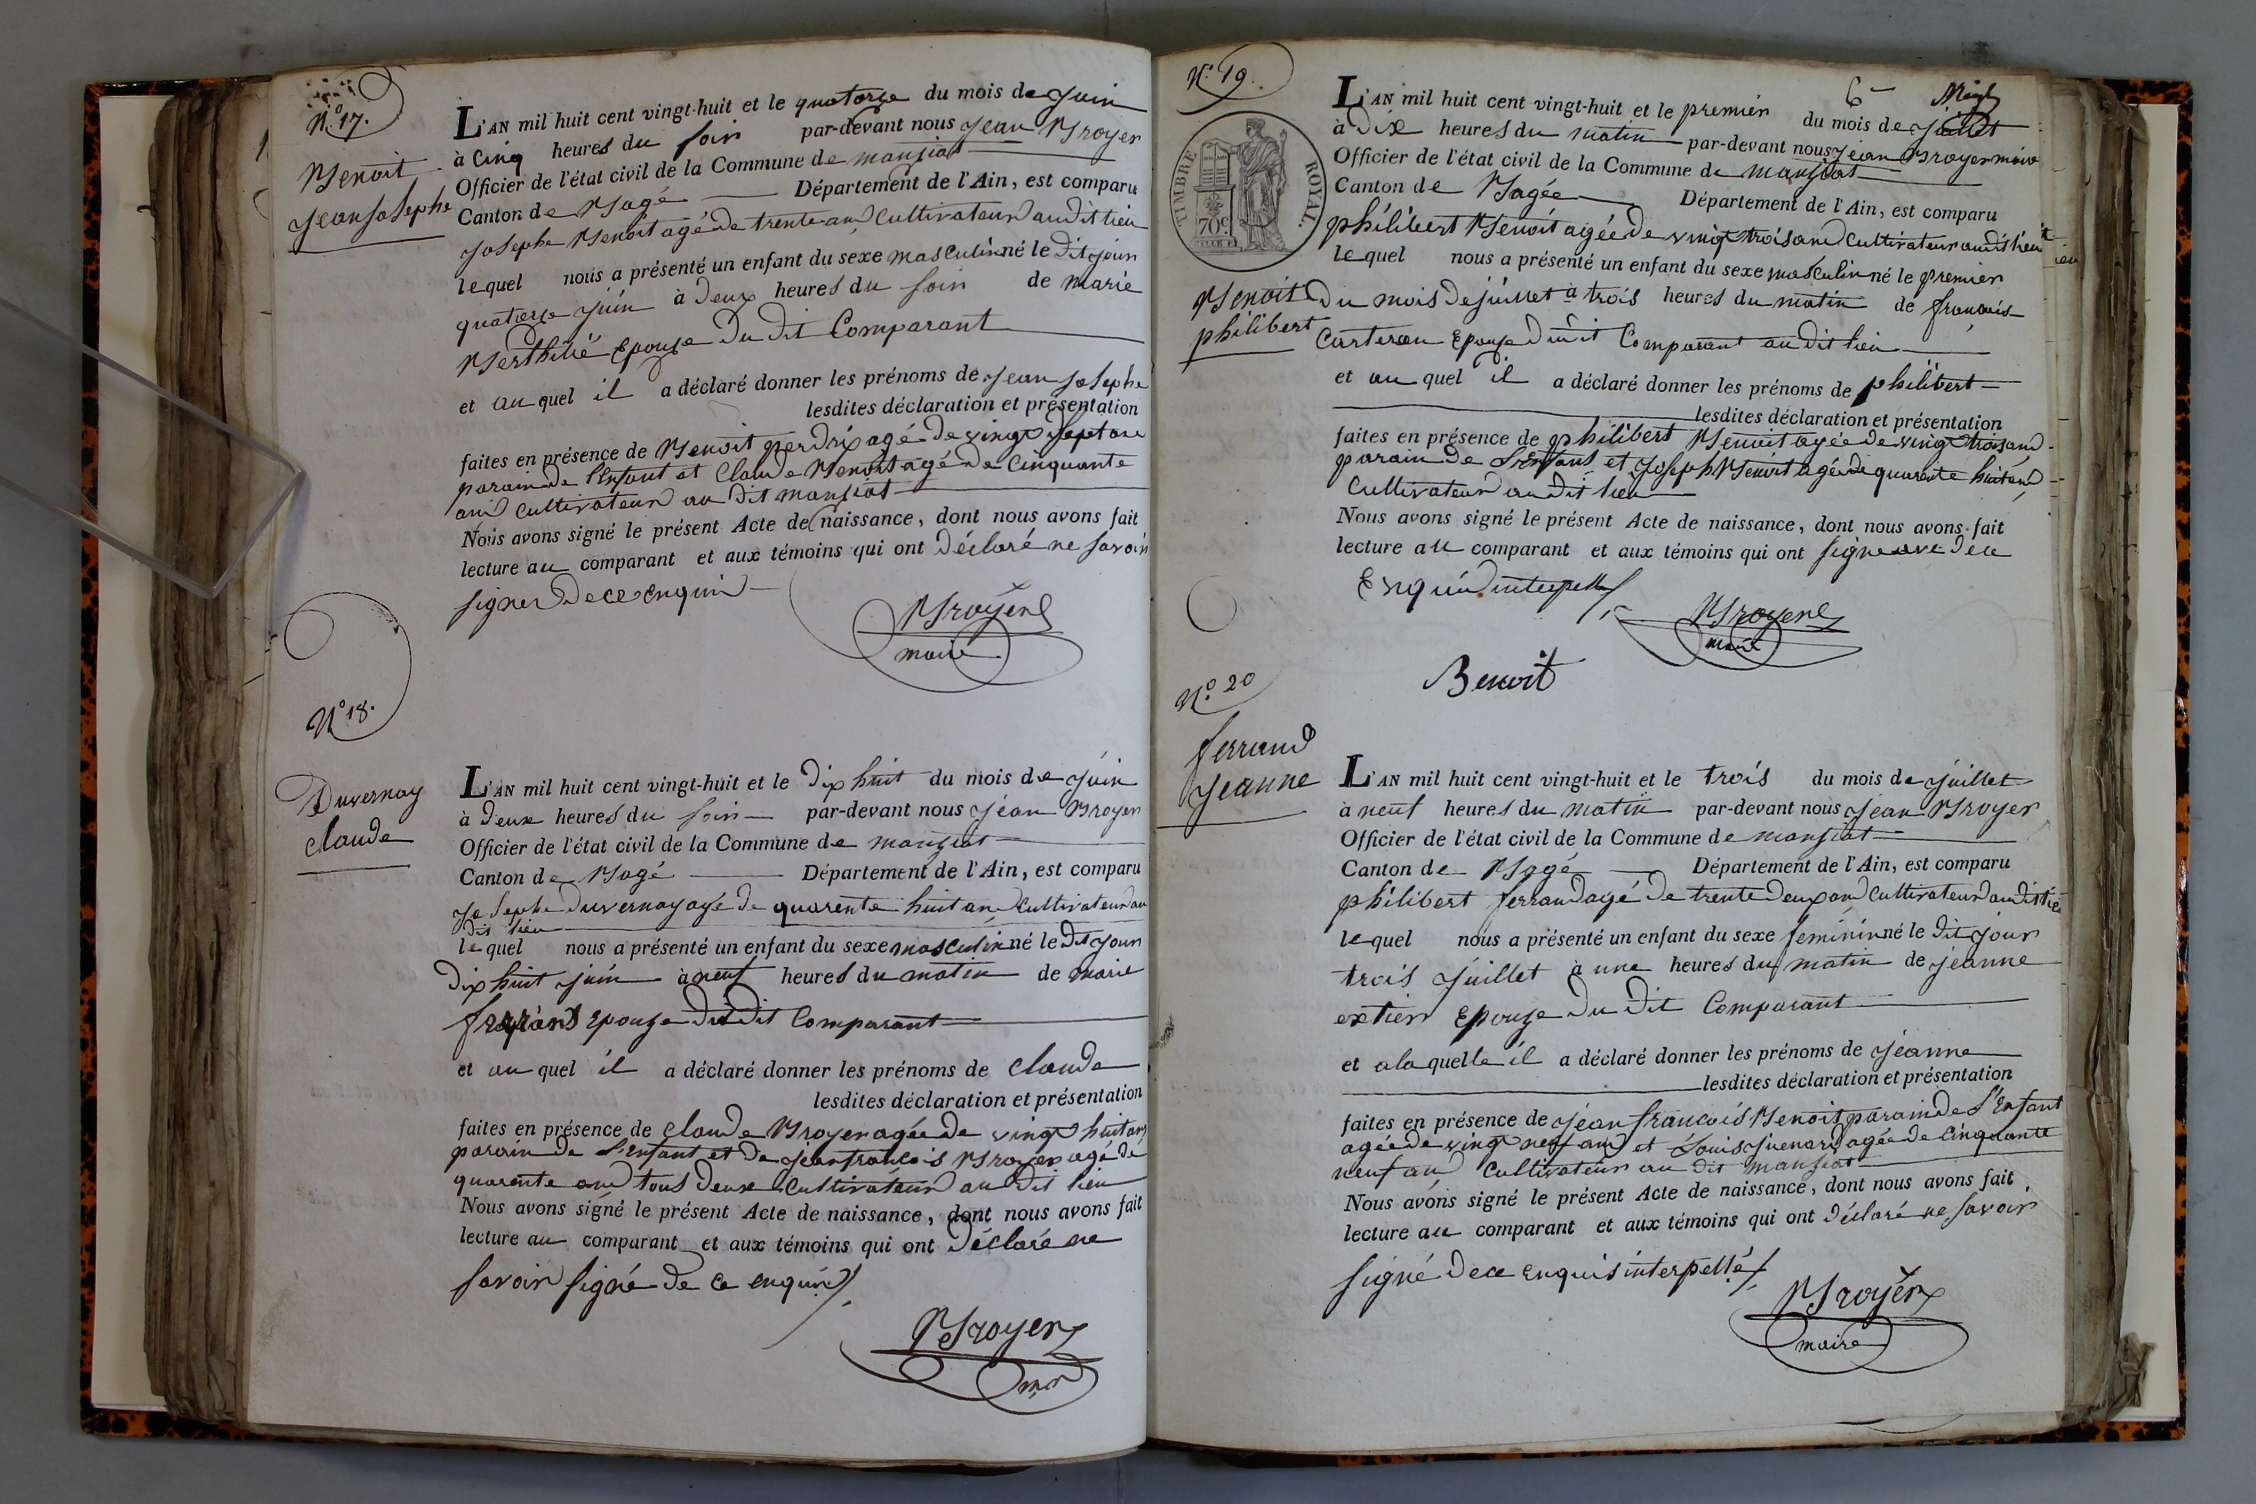 N.° 17.
Benoit
jean josephe
L'AN mil huit cent vingt-huit et le quatorze du mois de juin
à cinq heures du soir par-devant nous jean Broyer
Officier de l'état civil de la Commune de manziat
Canton de Bagé Département de l'Ain, est comparu
josephe Benoit agé de trente ans cultivateur audit lieu
lequel nous a présenté un enfant du sexe masculin né le dit jour
quatorze juin à deux heures du soir de marie
Berthilié Epouze du dit Comparant
et au quel il a déclaré donner les prénoms de jean josephe
lesdites déclaration et présentation
faites en présence de Benoit perdrix agé de vingt sept ans
parain de l'Enfant et Claude Benoit agé de Cinquante
ans cultivateurs au dit manziat
Nous avons signé le présent Acte de naissance, dont nous avons fait
lecture au comparant et aux témoins qui ont déclaré ne savoir
signer de ce enquis
Broyer
maire
N° 18.
Duvernay
claude
L'AN mil huit cent vingt-huit et le dix huit du mois de juin
à deux heures du soir par-devant nous jean Broyer
Officier de l'état civil de la Commune de manziat
Canton de Bagé Département de l'Ain, est comparu
josephe duvernay agé de quarente huit ans cultivateur au
dit lieu
lequel nous a présenté un enfant du sexe masculin né le dit jour
dix huit juin à neuf heures du matin de marie
Epouze du dit Comparant
et au quel il a déclaré donner les prénoms de claude
lesdites déclaration et présentation
faites en présence de claude Broyer agée de vingt huit ans
parain de l'enfant et de jean francois Broyer agé de
quarente ans tous deux Cultivateurs au dit lieu
Nous avons signé le présent Acte de naissance, dont nous avons fait
lecture au comparant et aux témoins qui ont déclaré ne
savoir signé de ce enquis
Broyer
mr
6
N.° 19.
TIMBRE ROYAL.
70c
Benoit
philibert
L'AN mil huit cent vingt-huit et le premier du mois de juillet
à dix heures du matin par-devant nous jean Broyer maire
Officier de l'état civil de la Commune de manziat
Canton de Bagée Département de l'Ain, est comparu
philibert Benoit agée de vingt trois ans cultivateur audit lieu
lequel nous a présenté un enfant du sexe masculin né le premier
du mois de juillet à trois heures du matin de francois
Carteron Epouze dudit Comparant au dit lieu
et au quel il a déclaré donner les prénoms de philibert
lesdites déclaration et présentation
faites en présence de philibert Benoit agée de vingt trois ans
parain de L'Enfant et joseph Benoit agé de quarente huit ans
cultivateurs au dit lieu
Nous avons signé le présent Acte de naissance, dont nous avons fait
lecture au comparant et aux témoins qui ont signe de ce
Enquis interpellé
Broyer
maire
Benoit
N.° 20
ferrand
jeanne
L'AN mil huit cent vingt-huit et le trois du mois de juillet
à neuf heures du matin par-devant nous jean Broyer
Officier de l'état civil de la Commune de manziat
Canton de Bagé Département de l'Ain, est comparu
philibert ferrand agé de trente deux ans cultivateur au dit lieu
lequel nous a présenté un enfant du sexe féminin né le dit jour
trois juillet à une heures du matin de jeanne
extier Epouze du dit Comparant
et a la quelle il a déclaré donner les prénoms de jeanne
lesdites déclaration et présentation
faites en présence de jean francois Benoit parain de L'Enfant
agée de vingt neuf ans et Louis juenard agée de Cinquante
neuf ans cultivateurs au dit manziat
Nous avons signé le présent Acte de naissance, dont nous avons fait
lecture au comparant et aux témoins qui ont déclaré ne savoir
signé de ce enquis interpellé
Broyer
maire